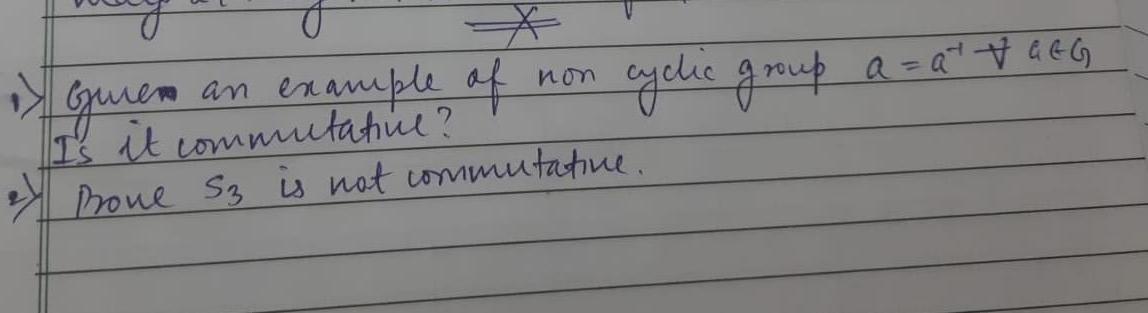 1) Given an example of non cyclic group a = a⁻¹ ∀ a∈G
Is it commutative?
2) Prove S₃ is not commutative.